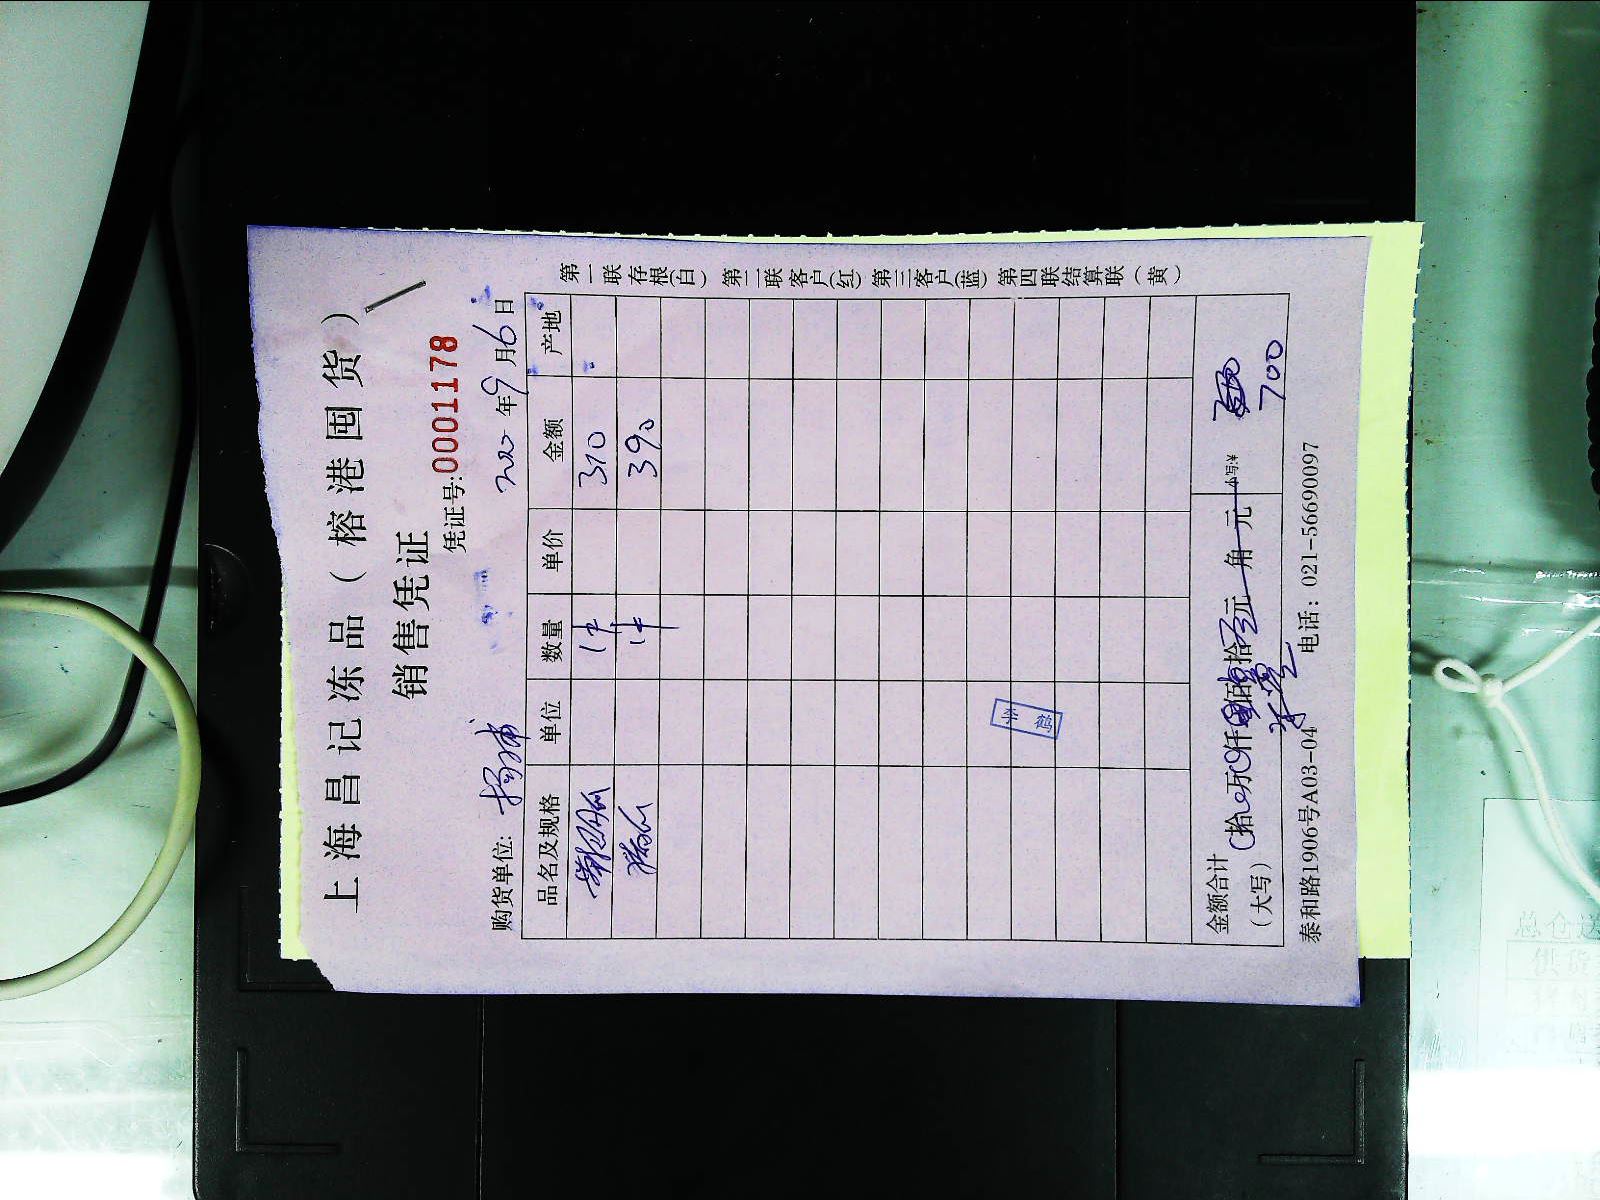 上海昌记冻品（榕港囤货）
销售凭证
凭证号:0001178
购货单位: 杨浦 年9月6日
品名及规格 单位 数量 单价 金额 产地
1件 310
1件 390
李鹤
金额合计（大写） 拾 万 仟 佰 拾 元 角 元 小写:¥ 700
泰和路1906号A03-04 电话: 021-56690097
第一联存根(白) 第二联客户(红) 第三客户(蓝) 第四联结算联(黄)